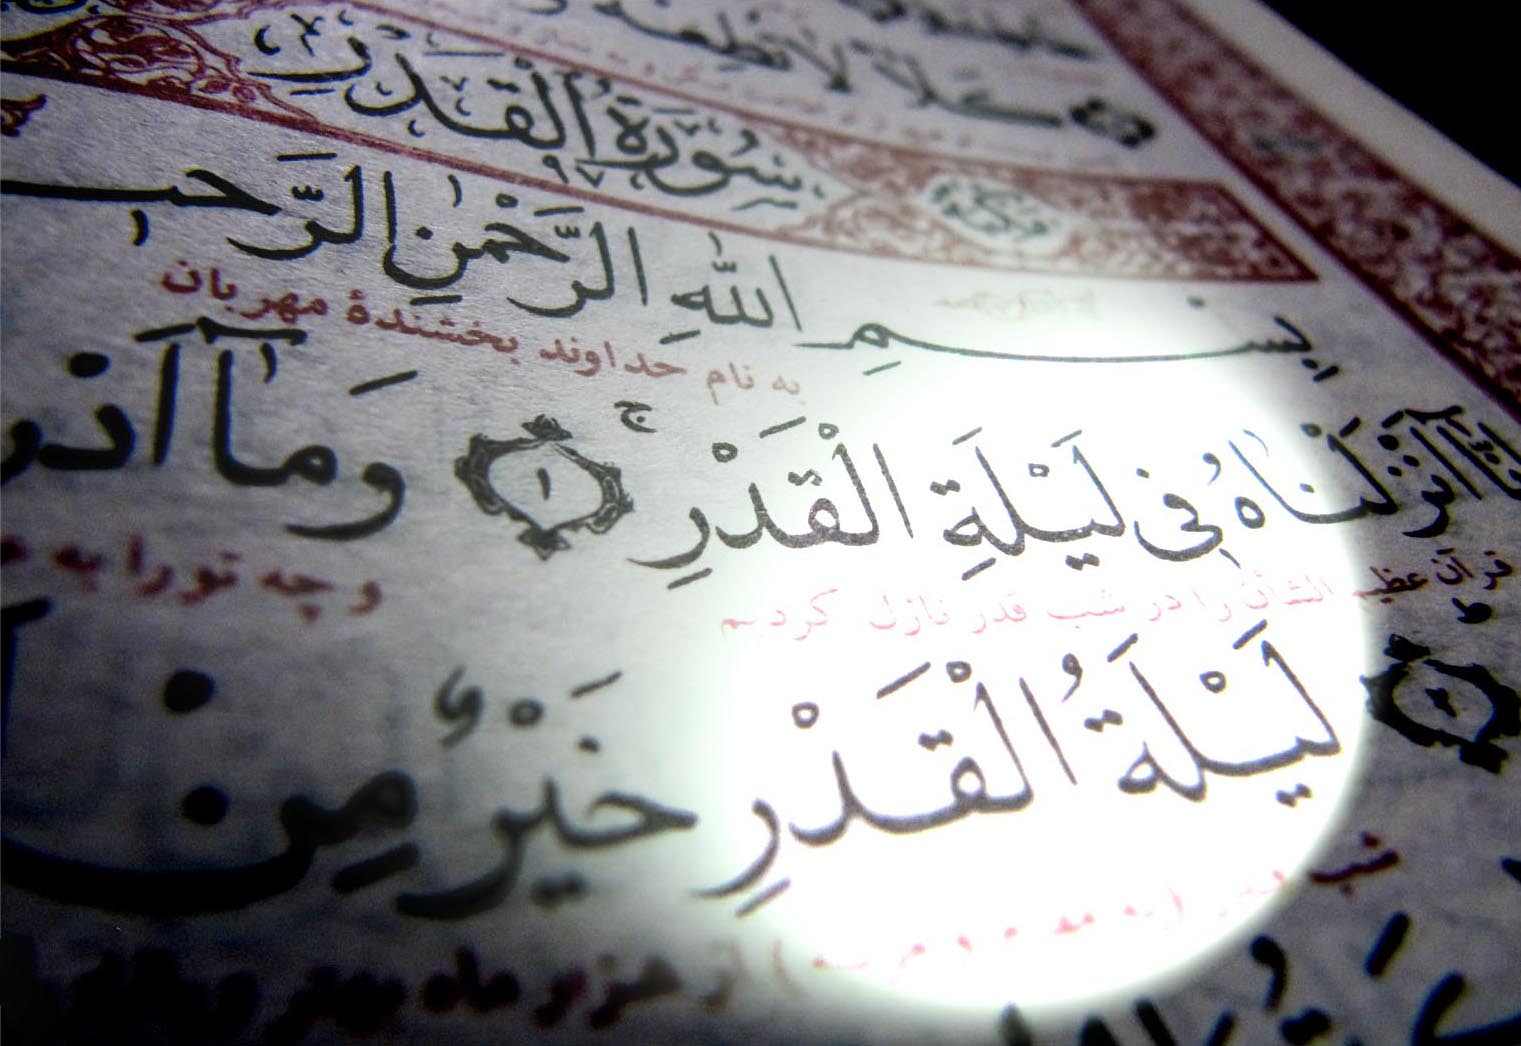 كَلَّا لَا تُطِعْهُ
سُورَةُ الْقَدْرِ
٩٧
بِسْمِ اللَّهِ الرَّحْمٰنِ الرَّحِيـ
به نام خداوند بخشندهٔ مهربان
نَّآ أَنْزَلْنٰاهُ فِى لَيْلَةِ الْقَدْرِ ج ١ وَمٰآ أَدْر
قرآن عظیم الشأن را در شب قدر نازل کردیم و چه تو را به
٢ لَيْلَةُ الْقَدْرِ خَيْرٌ مِنْ
شب قدر از هزار ماه بهتر و